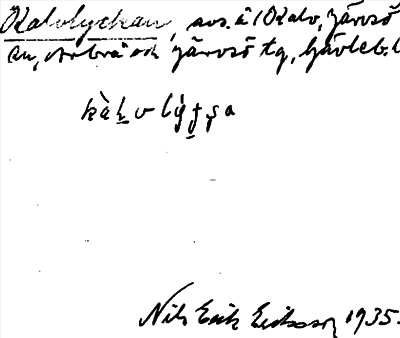 Kalvlyckan, avs. å 1 Kalv, Järvsö
sn, Arbrå och Järvsö tg, Gävleb. l
Nils Erik Eriksson 1935.